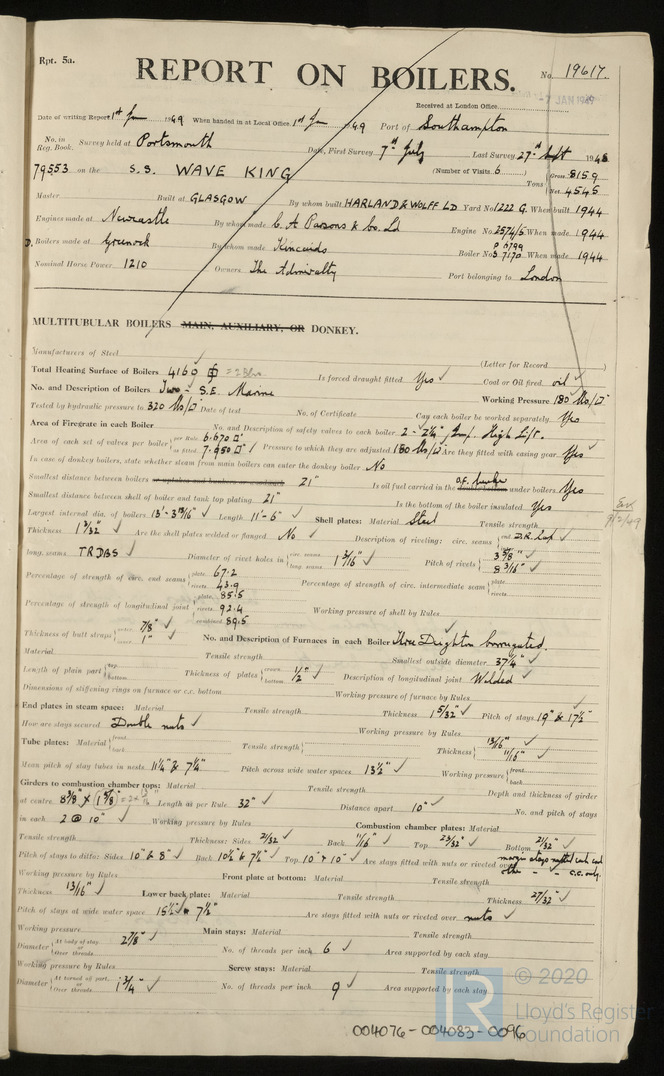 Rpt. 5a.
REPORT ON BOILERS.
No. 19617.
Received at London Office
-7 JAN 1949
Date of writing Report 1st Jan 1949 When handed in at Local Office 1st Jan 1949 Port of Southampton
No. in Reg. Book. Survey held at Portsmouth Date, First Survey 7th July Last Survey 27th Sept 1948
79553 on the S.S. WAVE KING (Number of Visits 6) Tons Gross 8159 Net 4545
Master Built at GLASGOW By whom built HARLAND & WOLFF LD Yard No 1222 G. When built 1944
Engines made at Newcastle By whom made C. A. Parsons & Co. Ld Engine No. 2574/5 When made 1944
D. Boilers made at Greenock By whom made Kincaids Boiler No. P 6799 S 7170 When made 1944
Nominal Horse Power 1210 Owners The Admiralty Port belonging to London
MULTITUBULAR BOILERS MAIN, AUXILIARY, OR DONKEY.
Manufacturers of Steel (Letter for Record )
Total Heating Surface of Boilers 4160 Is forced draught fitted Yes Coal or Oil fired oil
No. and Description of Boilers Two - S.E. Marine Working Pressure 180 lbs/□"
Tested by hydraulic pressure to 320 lbs/□" Date of test No. of Certificate Can each boiler be worked separately Yes
Area of Firegrate in each Boiler No. and Description of safety valves to each boiler 2 - 2¼" Imp. High Lift.
Area of each set of valves per boiler per Rule 6.670 □" as fitted 7.950 □" Pressure to which they are adjusted 180 lbs/□" Are they fitted with easing gear Yes
In case of donkey boilers, state whether steam from main boilers can enter the donkey boiler No
Smallest distance between boilers 21" Is oil fuel carried in the under boilers Yes
Smallest distance between shell of boiler and tank top plating 21" Is the bottom of the boiler insulated Yes
Largest internal dia. of boilers 13'-3 13/16" Length 11'-6" Shell plates: Material Steel Tensile strength
Thickness 1 3/32" Are the shell plates welded or flanged No Description of riveting: circ. seams end D.R. Lap
long. seams TRDBS Diameter of rivet holes in circ. seams long. seams 1 3/16" Pitch of rivets 3 5/8" 8 3/16"
Percentage of strength of circ. end seams plate 67.2 rivets 43.9 Percentage of strength of circ. intermediate seam plate rivets
Percentage of strength of longitudinal joint plate 85.5 rivets 92.4 combined 89.5 Working pressure of shell by Rules
Thickness of butt straps outer 7/8" inner 1" No. and Description of Furnaces in each Boiler Three Deighton Corrugated.
Material Tensile strength Smallest outside diameter 37¼"
Length of plain part top bottom Thickness of plates crown bottom ½" Description of longitudinal joint Welded
Dimensions of stiffening rings on furnace or c.c. bottom Working pressure of furnace by Rules
End plates in steam space: Material Tensile strength Thickness 1 5/32" Pitch of stays 19" & 17½"
How are stays secured Double nuts Working pressure by Rules
Tube plates: Material front back Tensile strength Thickness 13/16" 11/16"
Mean pitch of stay tubes in nests 11¼" & 7¼" Pitch across wide water spaces 13½" Working pressure front back
Girders to combustion chamber tops: Material Tensile strength Depth and thickness of girder
at centre 8 3/8" x (1 5/8") Length as per Rule 32" Distance apart 10" No. and pitch of stays
in each 2 @ 10" Working pressure by Rules Combustion chamber plates: Material
Tensile strength Thickness: Sides 21/32 Back 11/16 Top 23/32" Bottom 21/32"
Pitch of stays to ditto: Sides 10" & 8" Back 10½" & 7½" Top 10" x 10" Are stays fitted with nuts or riveted over margin stays nutted each end other - - c.c. only.
Working pressure by Rules Front plate at bottom: Material Tensile strength
Thickness 13/16" Lower back plate: Material Tensile strength Thickness 27/32"
Pitch of stays at wide water space 15½" x 7½" Are stays fitted with nuts or riveted over nuts
Working pressure Main stays: Material Tensile strength
Diameter At body of stay or Over threads 2 7/8" No. of threads per inch 6 Area supported by each stay
Working pressure by Rules Screw stays: Material Tensile strength
Diameter At turned off part, or Over threads 1¾" No. of threads per inch 9 Area supported by each stay
© 2020
Lloyd's Register
Foundation
004076-004083-0096